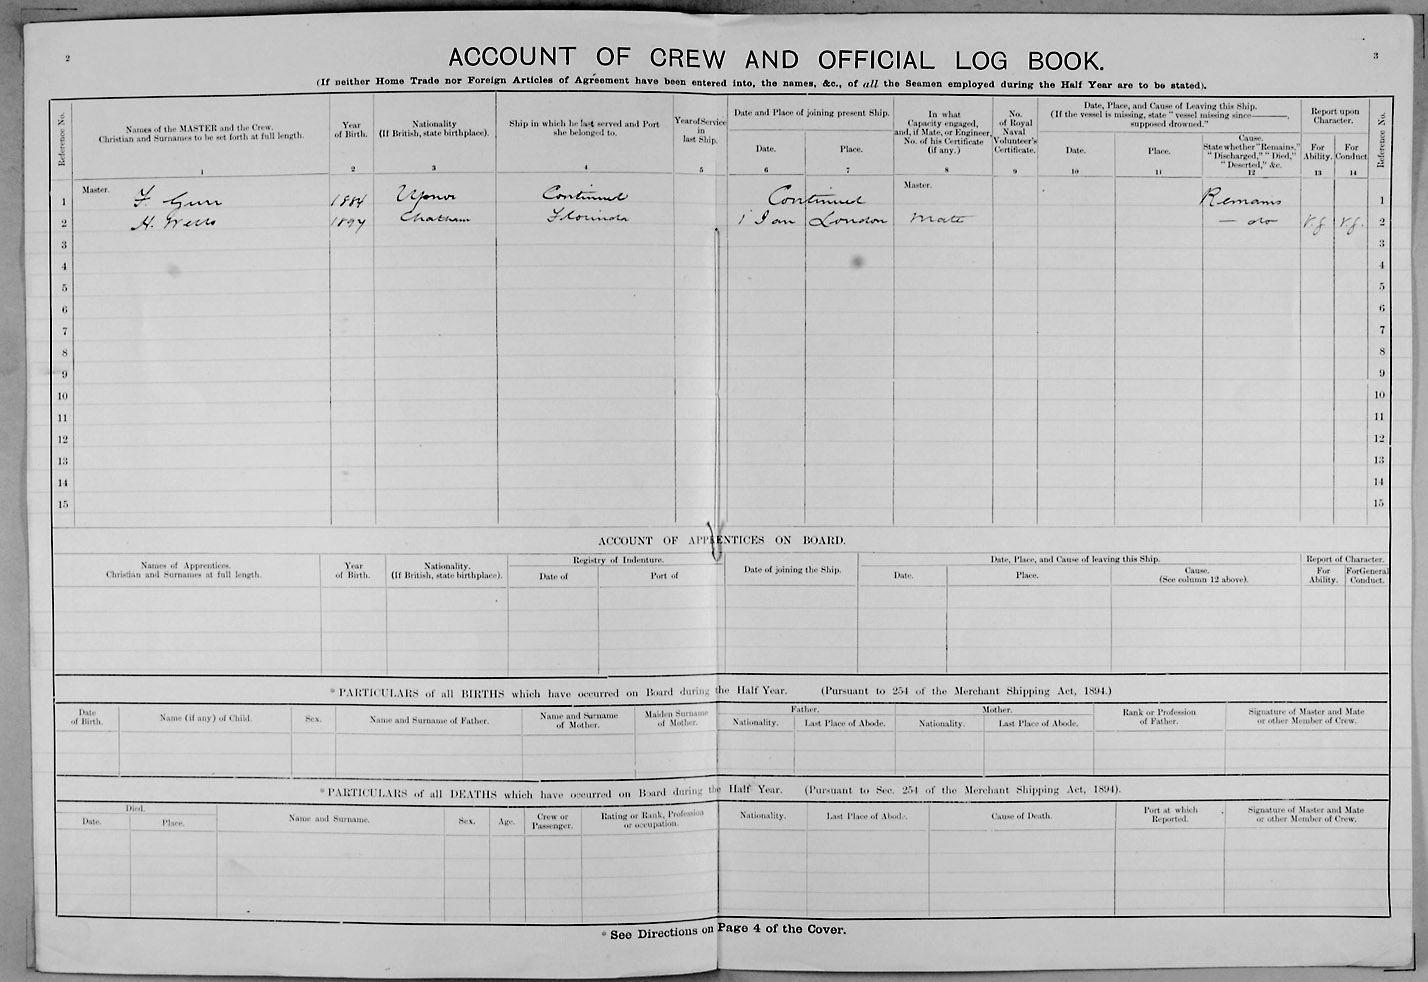 2
3
ACCOUNT OF CREW AND OFFICIAL LOG BOOK.
(If neither Home Trade nor Foreign Articles of Agreement have been entered into, the names, &c., of all the Seamen employed during the Half Year are to be stated).
Reference No.
Names of the MASTER and the Crew.
Christian and Surnames to be set forth at full length.
1
Year
of Birth.
2
Nationality
(If British, state birthplace).
3
Ship in which he last served and Port
she belonged to.
4
Year of Service
in
last Ship.
5
Date and Place of joining present Ship.
Date.
6
Place.
7
In what
Capacity engaged,
and, if Mate, or Engineer,
No. of his Certificate
(if any.)
8
No.
of Royal
Naval
Volunteer's
Certificate.
9
Date, Place, and Cause of Leaving this Ship.
(If the vessel is missing, state "vessel missing since———,
supposed drowned."
Date.
10
Place.
11
Cause.
State whether "Remains,"
"Discharged," "Died,"
"Deserted," &c.
12
Report upon
Character.
For
Ability.
13
For
Conduct
14
Reference No.
1 Master. F Gunn 1884 Upnor Continued Continued Master. Remains 1
2 H. Wells 1897 Chatham Florinda 1 Jan London Mate — do V.g V.g. 2
3 3
4 4
5 5
6 6
7 7
8 8
9 9
10 10
11 11
12 12
13 13
14 14
15 15
ACCOUNT OF APPRENTICES ON BOARD.
Names of Apprentices.
Christian and Surnames at full length.
Year
of Birth.
Nationality.
(If British, state birthplace).
Registry of Indenture.
Date of
Port of
Date of joining the Ship.
Date, Place, and Cause of leaving this Ship.
Date.
Place.
Cause.
(See column 12 above).
Report of Character.
For
Ability.
For General
Conduct.
* PARTICULARS of all BIRTHS which have occurred on Board during the Half Year. (Pursuant to 254 of the Merchant Shipping Act, 1894.)
Date
of Birth.
Name (if any) of Child.
Sex.
Name and Surname of Father.
Name and Surname
of Mother.
Maiden Surname
of Mother.
Father.
Nationality.
Last Place of Abode.
Mother.
Nationality.
Last Place of Abode.
Rank or Profession
of Father.
Signature of Master and Mate
or other Member of Crew.
* PARTICULARS of all DEATHS which have occurred on Board during the Half Year. (Pursuant to Sec. 254 of the Merchant Shipping Act, 1894).
Died.
Date.
Place.
Name and Surname.
Sex.
Age.
Crew or
Passenger.
Rating or Rank, Profession
or occupation.
Nationality.
Last Place of Abode.
Cause of Death.
Port at which
Reported.
Signature of Master and Mate
or other Member of Crew.
* See Directions on Page 4 of the Cover.